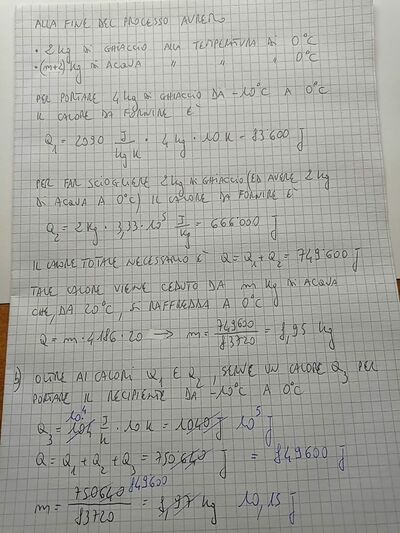 ALLA FINE DEL PROCESSO AVREMO
• 2 Kg DI GHIACCIO ALLA TEMPERATURA DI 0°C
• (m+2) Kg DI ACQUA " " " 0°C
PER PORTARE 4 Kg DI GHIACCIO DA -10°C A 0°C
IL CALORE DA FORNIRE È
Q₁ = 2090 J/(Kg K) · 4 Kg · 10 K = 83600 J
PER FAR SCIOGLIERE 2 Kg DI GHIACCIO (ED AVERE 2 Kg
DI ACQUA A 0°C) IL CALORE DA FORNIRE È
Q₂ = 2 Kg · 3,33 · 10⁵ J/Kg = 666'000 J
IL CALORE TOTALE NECESSARIO È Q = Q₁ + Q₂ = 749'600 J
TALE CALORE VIENE CEDUTO DA m Kg DI ACQUA
CHE, DA 20°C, SI RAFFREDDA A 0°C
Q = m · 4186 · 20 → m = 749600/83720 = 8,95 Kg
b) OLTRE AI CALORI Q₁ E Q₂, SERVE UN CALORE Q₃ PER
PORTARE IL RECIPIENTE DA -10°C A 0°C
Q₃ = 104 10⁴ J/K · 10 K = 1040 J 10⁵ J
Q = Q₁ + Q₂ + Q₃ = 750'640 J = 849600 J
m = 750640 849600/83720 = 8,97 Kg 10,15 J